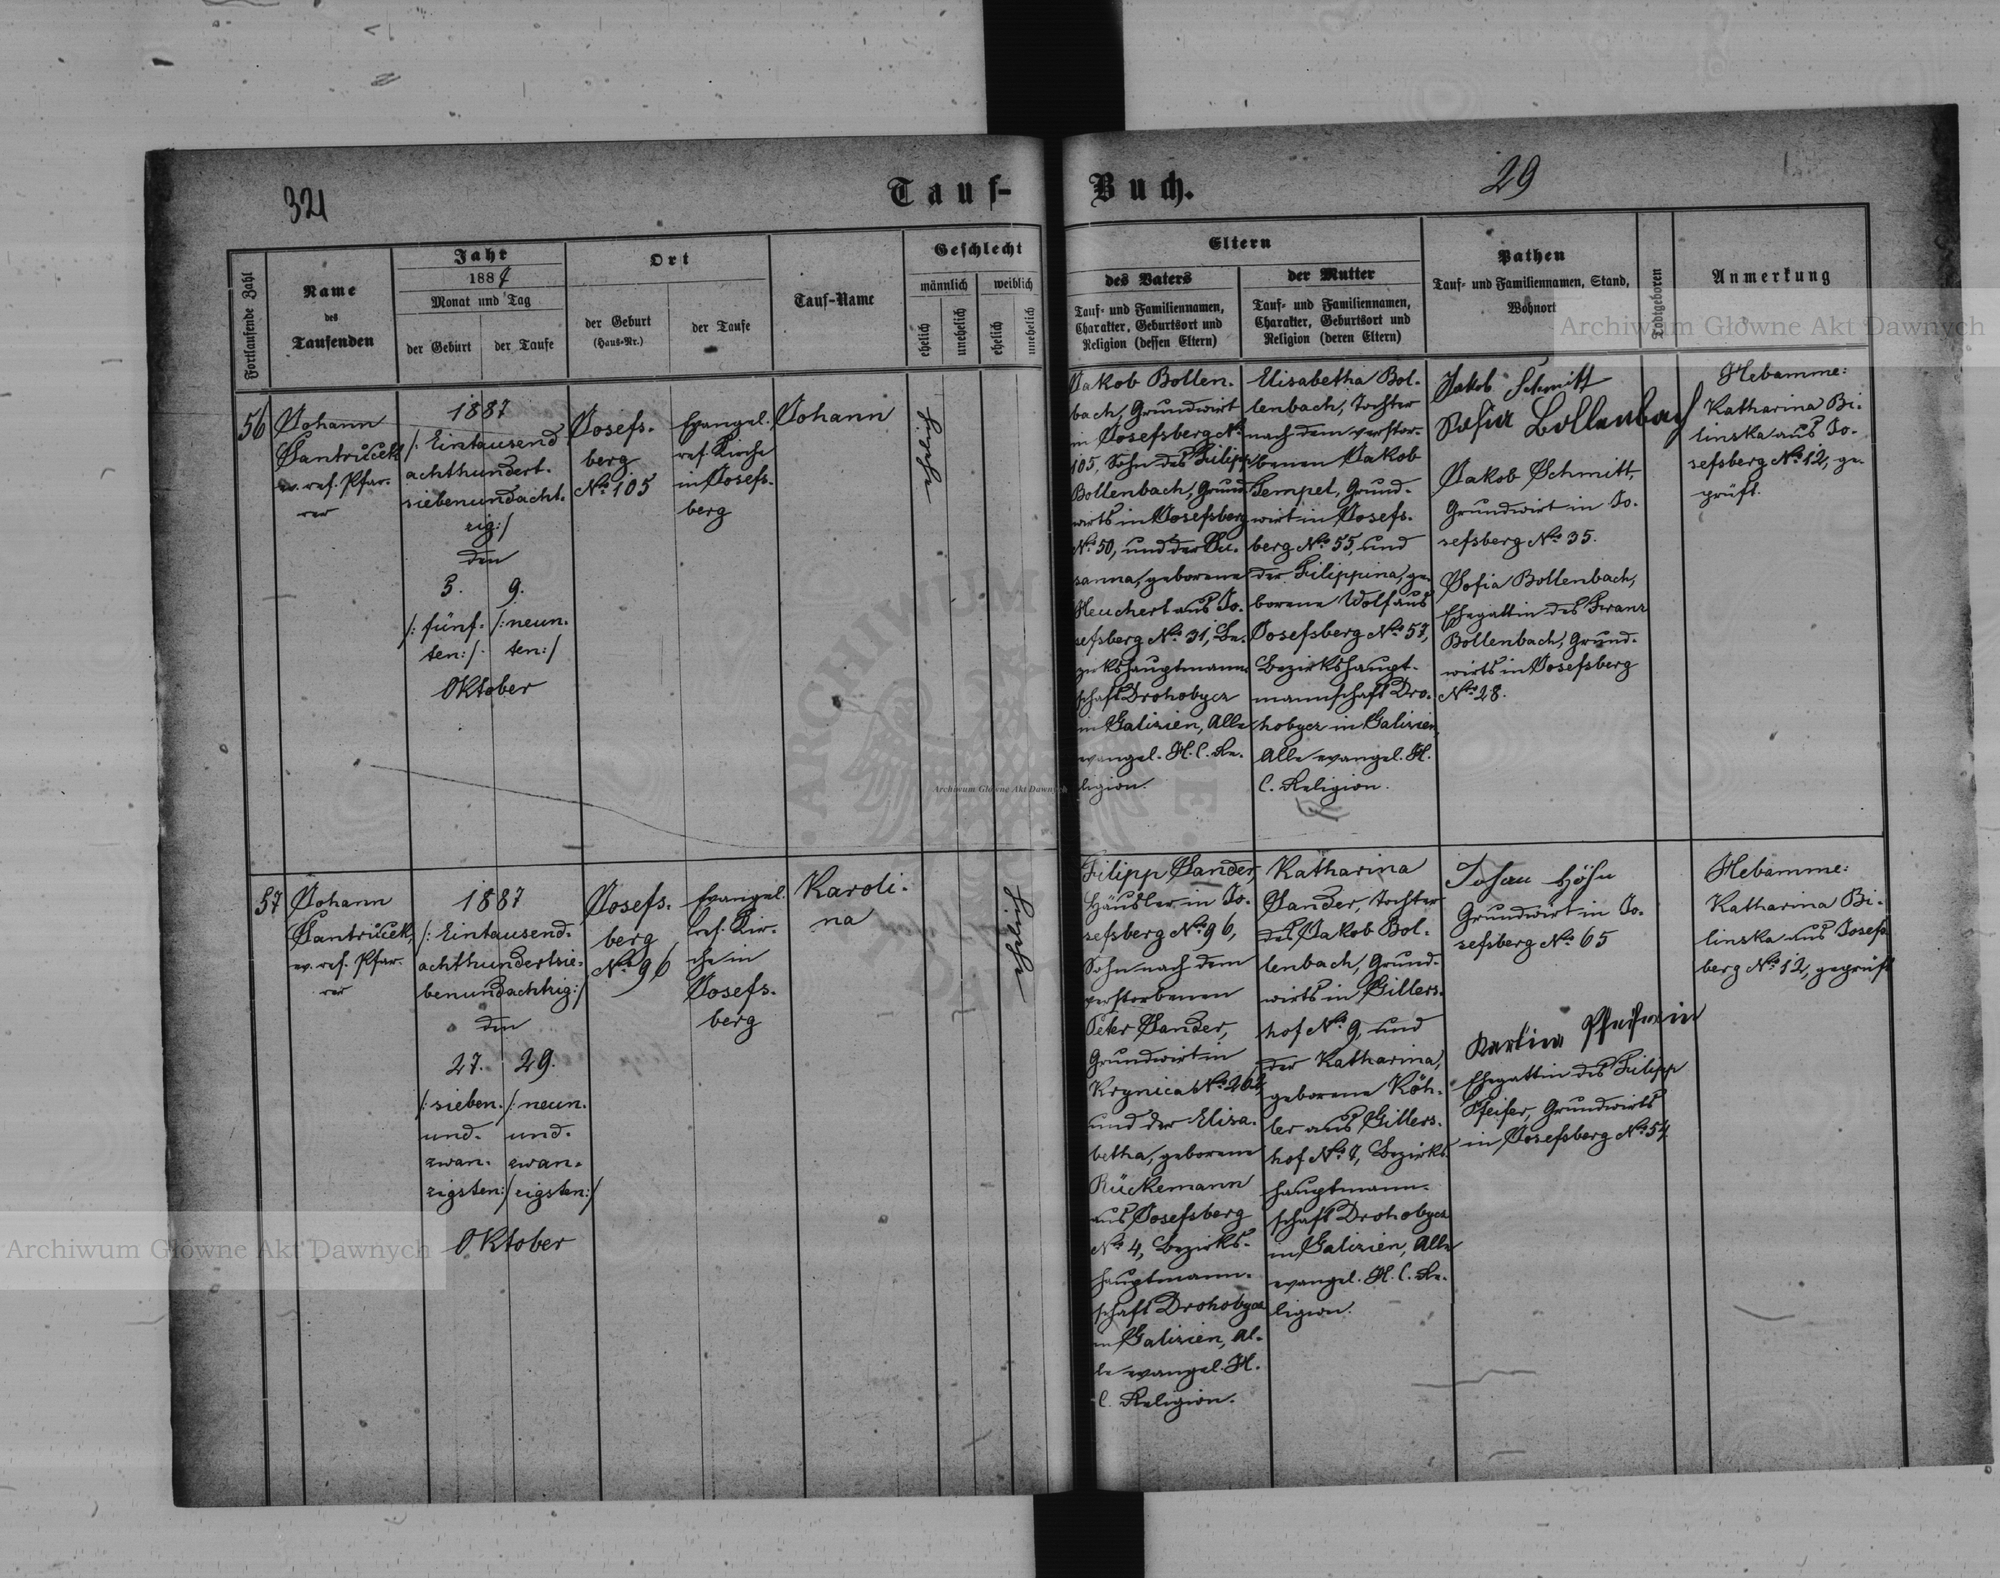 321
Tauf-
Buch.
29
Fortlaufende Zahl
Name
des
Taufenden
Jahr
1887
Monat und Tag
der Geburt
der Taufe
Ort
der Geburt
(Haus-Nr.)
der Taufe
Tauf-Name
Geschlecht
männlich
weiblich
ehelich
unehelich
ehelich
unehelich
Eltern
des Vaters
Tauf- und Familiennamen,
Charakter, Geburtsort und
Religion (dessen Eltern)
der Mutter
Tauf- und Familiennamen,
Charakter, Geburtsort und
Religion (deren Eltern)
Pathen
Tauf- und Familiennamen, Stand,
Wohnort
Todtgeboren
Anmerkung
56
Johann
Santrůček
ev. ref. Pfar-
rer
1887
/: Eintausend
achthundert-
siebenundacht-
zig :/
den
5.
9.
/: fünf-
ten :/
/: neun-
ten :/
Oktober
Josefs-
berg
No. 105
Evangel.
ref. Kirche
in Josefs-
berg
Johann
ehelich
Jakob Bollen-
bach, Grundwirt
in Josefsberg No.
105, Sohn des Filipp
Bollenbach, Grund-
wirts in Josefsberg
No. 50, und der Su-
sanna, geborene
Heuchert aus Jo-
sefsberg No. 31, Be-
zirkshauptmann-
schaft Drohobycz
in Galizien, Alle
evangel. H. C. Re-
ligion.
Elisabetha Bol-
lenbach, Tochter
nach dem verstor-
benen Jakob
Tempel, Grund-
wirt in Josefs-
berg No. 55, und
der Filippina, ge-
borene Wolf aus
Josefsberg No. 57,
Bezirkshaupt-
mannschaft Dro-
hobycz in Galizien,
Alle evangel. H.
C. Religion.
Jakob Schmitt
Sofia Bollenbach
Jakob Schmitt,
Grundwirt in Jo-
sefsberg No. 35.
Sofia Bollenbach,
Ehegattin des Franz
Bollenbach, Grund-
wirts in Josefsberg
No. 28.
Hebamme:
Katharina Bi-
linska aus Jo-
sefsberg No. 12, ge-
prüft.
57
Johann
Santrůček,
ev. ref. Pfar-
rer
1887
/: Eintausend-
achthundertsie-
benundachtzig :/
den
27.
29.
/: sieben-
und-
zwan-
zigsten :/
/: neun-
und-
zwan-
zigsten :/
Oktober
Josefs-
berg
No. 96
Evangel.
ref. Kir-
che in
Josefs-
berg
Karoli-
na
ehelich
Filipp Sander,
Häusler in Jo-
sefsberg No. 96,
Sohn nach dem
verstorbenen
Peter Sander,
Grundwirt in
Krynica No. 262,
und der Elisa-
betha, geborene
Rückemann
aus Josefsberg
No. 4, Bezirks-
hauptmann-
schaft Drohobycz
in Galizien, Al-
le evangel. H.
C. Religion.
Katharina
Sander, Tochter
des Jakob Bol-
lenbach, Grund-
wirts in Gillers-
hof No. 9, und
der Katharina,
geborene Köh-
ler aus Gillers-
hof No. 7, Bezirks-
hauptmann-
schaft Drohobycz
in Galizien, Alle
evangel. H. C. Re-
ligion.
Johan Höhn
Grundwirt in Jo-
sefsberg No. 65
Ehegattin des Filipp
Pfeifer, Grundwirts
in Josefsberg No. 54
Hebamme:
Katharina Bi-
linska aus Josefs-
berg No. 12, geprüft
Archiwum Główne Akt Dawnych
Archiwum Główne Akt Dawnych
Archiwum Główne Akt Dawnych